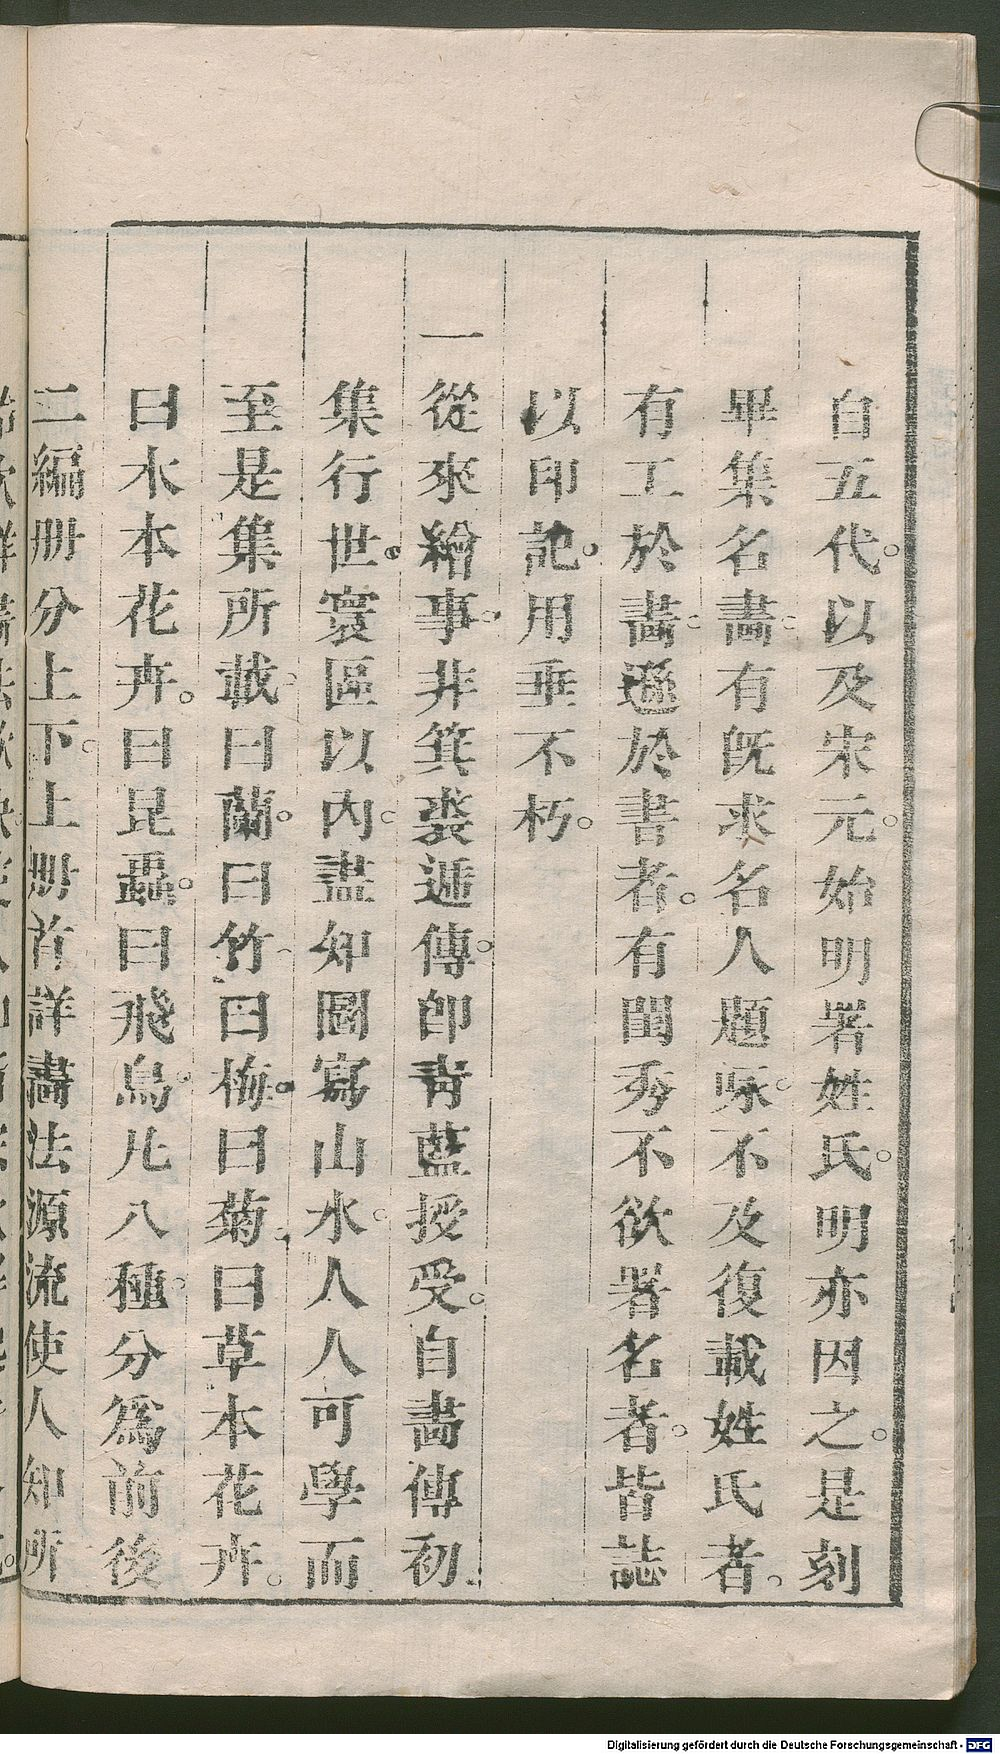 自五代。以及宋元。始明署姓氏。明亦因之。是刻
畢集名畵。有既求名人題咏。不及復載姓氏者。
有工於畵。遜於書者。有閨秀不欲署名者。皆誌
以印記。用垂不朽。
一從來繪事。非箕裘遞傳。卽靑藍授受。自畵傳初
集行世。寰區以內。盡如圖寫山水。人人可學而
至是集所載。曰蘭。曰竹。曰梅。曰菊。曰草本花卉。
曰木本花卉。曰昆蟲。曰飛鳥。凡八種。分爲前後
二編册分上下。上册首詳畵法源流使人知所
Digitalisierung gefördert durch die Deutsche Forschungsgemeinschaft - DFG